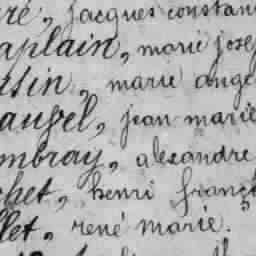 re, jacques constan
aplain, marie jose
rsin, marie ange
augel, jean marie
mbray, alexandre
chet, henri franç
llet, rené marie.